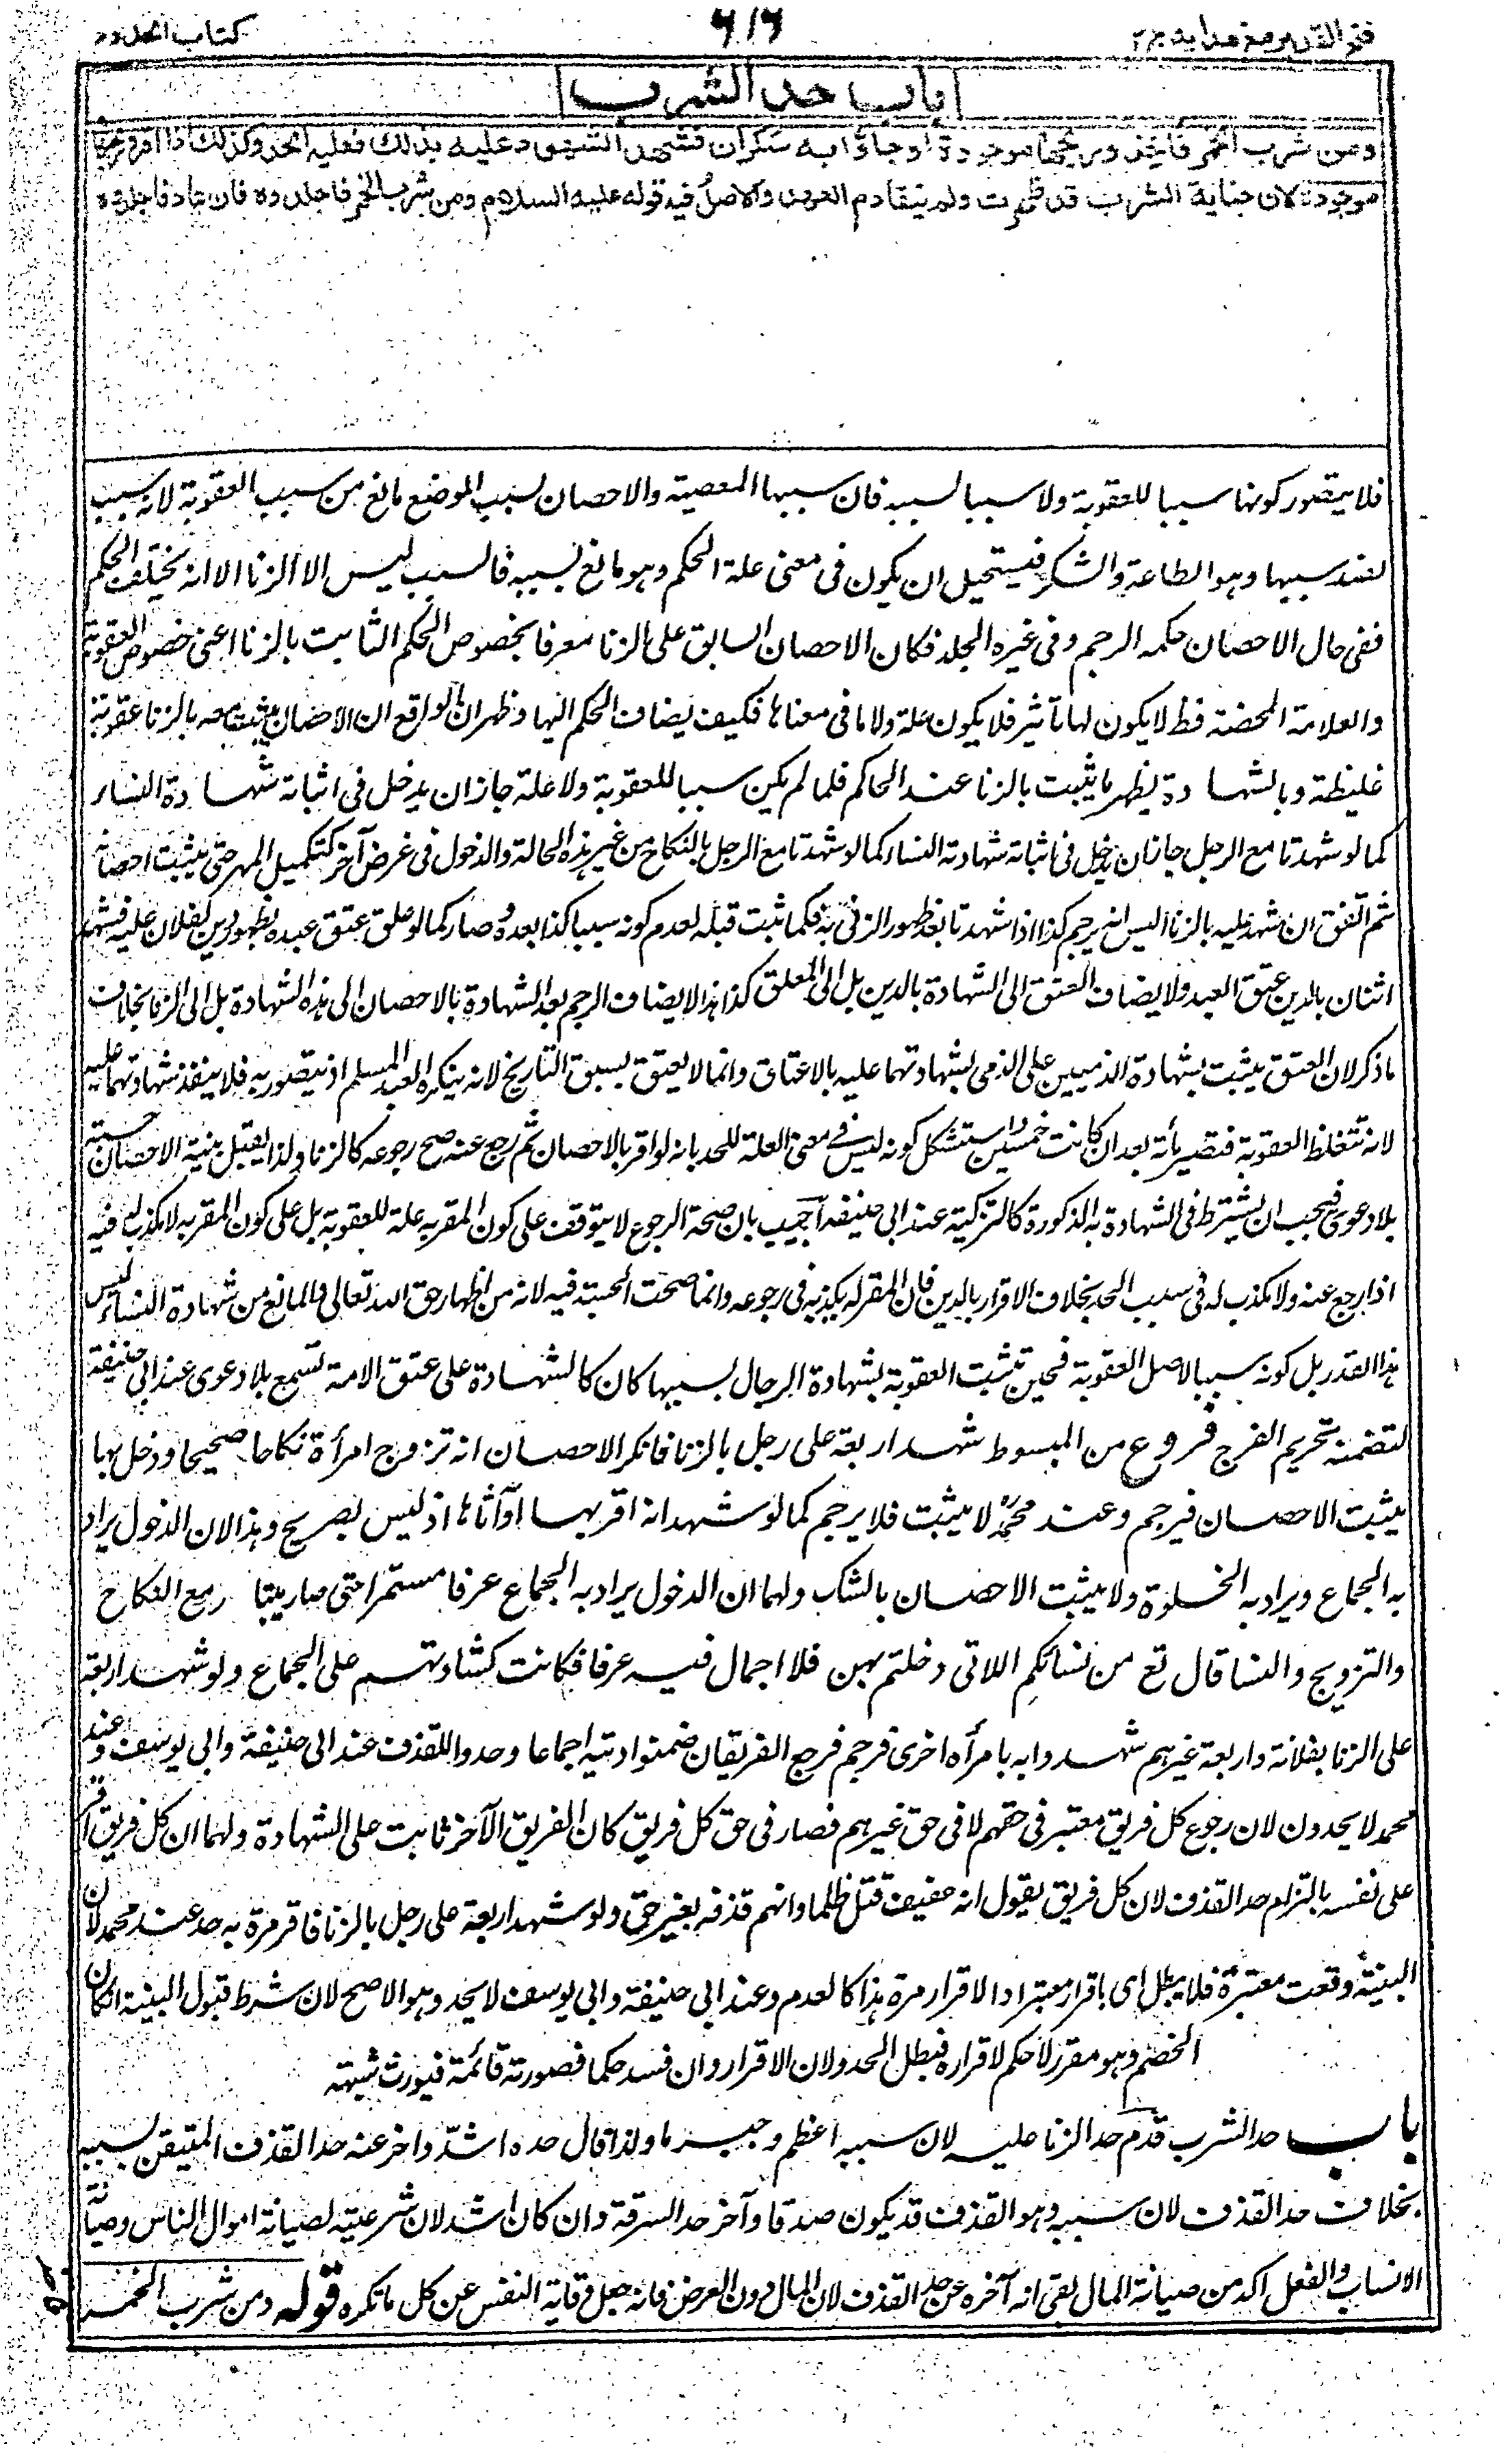 فتح القدير مع هدايه ج ٢
٦١٦
كتاب الحدود
باب حد الشرب
ومن شرب الخمر فاخذ وريحها موجودة او جاؤا به سكران فشهد الشهود عليه بذلك فعليه الحد وكذلك اذا اقر وريحها
موجودة لان جناية الشرب قد ظهرت ولم يتقادم العهد والاصل فيه قوله عليه السلام ومن شرب الخمر فاجلدوه فان عاد فاجلدوه
فلا يتصور كونها سببا للعقوبة ولا سببا لسببه فان سببها المعصية والاحصان لسبب الموضع مانع من سبب العقوبة لانه سبب
لضد سببها وهو الطاعة والشكر فيستحيل ان يكون فى معنى علة الحكم وهو مانع لسببه فالسبب ليس الا الزنا الا انه يختلف الحكم
ففى حال الاحصان حكمه الرجم وفى غيره الجلد فكان الاحصان السابق على الزنا معرفا بخصوص الحكم الثابت بالزنا اعنى خصوص العقوبة
والعلامة المحضة قط لا يكون لها تأثير فلا يكون علة ولا ما فى معناها فكيف يضاف الحكم اليها وظهر ان الواقع ان الاحصان يثبت معه بالزنا عقوبة
غليظة وبالشهادة يظهر ما يثبت بالزنا عند الحاكم فلما لم يكن سببا للعقوبة ولا علة جاز ان يدخل فى اثباته شهادة النساء
كما لو شهدتا مع الرجل جاز ان يدخل فى اثباته شهادة النساء كما لو شهدتا مع الرجل بالنكاح من غير هذه الحالة والدخول فى غرض آخر كتكميل المهر حتى يثبت احصانه
ثم اتفق ان شهد عليه بالزنا اليس انه يرجم كذا اذا شهدتا بعد ظهور الزنى به فكما ثبت قبله لعدم كونه سببا كذا بعده وصار كما لو علق عتق عبده بظهور دين لفلان عليه فشهد
اثنان بالدين عتق العبد ولا يضاف العتق الى الشهادة بالدين بل الى المعلق كذا هذا لا يضاف الرجم بعد الشهادة بالاحصان الى هذه الشهادة بل الى الزنا بخلاف
ما ذكر لان العتق يثبت بشهادة الذميين على الذمى بشهادتهما عليه بالاعتاق وانما لا يعتق بسبق التاريخ لانه ينكره العبد المسلم او يتضرر به فلا ينفذ شهادتهما عليه
لانه تتغلظ العقوبة فتصير مأة بعد ان كانت خمسين واستشكل كونه ليس فى معنى العلة للحد بانه لو اقر بالاحصان ثم رجع عنه صح رجوعه كالزنا ولذا يقبل بينة الاحصان حسبة
بلا دعوى فيجب ان يشترط فى الشهادة به الذكورة كالتزكية عند ابى حنيفة اجيب بان صحة الرجوع لا يتوقف على كون المقر به علة للعقوبة بل على كون المقر به لا مكذب له فيه
اذا رجع عنه ولا مكذب له فى سبب الحد بخلاف الاقرار بالدين فان المقر له يكذبه فى رجوعه وانما صحت الحسبة فيه لانه من اظهار حق الله تعالى والمانع من شهادة النساء ليس
هذا القدر بل كونه سببا لاصل العقوبة فحين تثبت العقوبة بشهادة الرجال بسببها كان كالشهادة على عتق الامة تسمع بلا دعوى عند ابى حنيفة
لتضمنه تحريم الفرج فروع من المبسوط شهد اربعة على رجل بالزنا فانكر الاحصان انه تزوج امرأة نكاحا صحيحا ودخل بها
يثبت الاحصان فيرجم وعند محمد لا يثبت فلا يرجم كما لو شهد انه اقربها او آتاها اذ ليس بصريح وهذا لان الدخول يراد
به الجماع ويراد به الخلوة ولا يثبت الاحصان بالشك ولهما ان الدخول يراد به الجماع عرفا مستمرا حتى صار مع النكاح
والتزويج والنسا قال تع من نسائكم اللاتى دخلتم بهن فلا اجمال فيه عرفا فكانت كشهادتهم على الجماع ولو شهد اربعة
على الزنا بفلانة واربعة غيرهم شهدوا به بامرأه اخرى فرجم فرجع الفريقان ضمنوا ديته اجماعا وحدوا للقذف عند ابى حنيفة وابى يوسف وعند
محمد لا يحدون لان رجوع كل فريق معتبر فى حقهم لا فى حق غيرهم فصار فى حق كل فريق كان الفريق الآخر ثابت على الشهادة ولهما ان كل فريق اقر
على نفسه بالتزام حد القذف لان كل فريق يقول انه عفيف قتل ظلما وانهم قذفه بغير حق ولو شهد اربعة على رجل بالزنا فاقر مرة به حد عند محمد لان
البينة وقعت معتبرة فلا يبطل اى باقرار معتبر اذ الاقرار مرة هذا كالعدم وعند ابى حنيفة وابى يوسف لا يحد وهو الاصح لان شرط قبول البينة انكار
الخصم وهو مقر لا حكم لاقراره فبطل الحد ولان الاقرار وان فسد حكما فصورته قائمة فيورث شبهة
باب حد الشرب قدم حد الزنا عليه لان سببه اعظم جرما ولذا قال حده اشد واخر عنه حد القذف المتيقن بسببه
بخلاف حد القذف لان سببه وهو القذف قد يكون صدقا وآخر حد السرقة وان كان اشد لان شرعيته لصيانة اموال الناس وصيانة
الانساب والعقل اكد من صيانة المال بقى انه آخره عن حد القذف لان المال دون العرض فانه جعل وقاية النفس عن كل ما تكره قوله ومن شرب الخمر